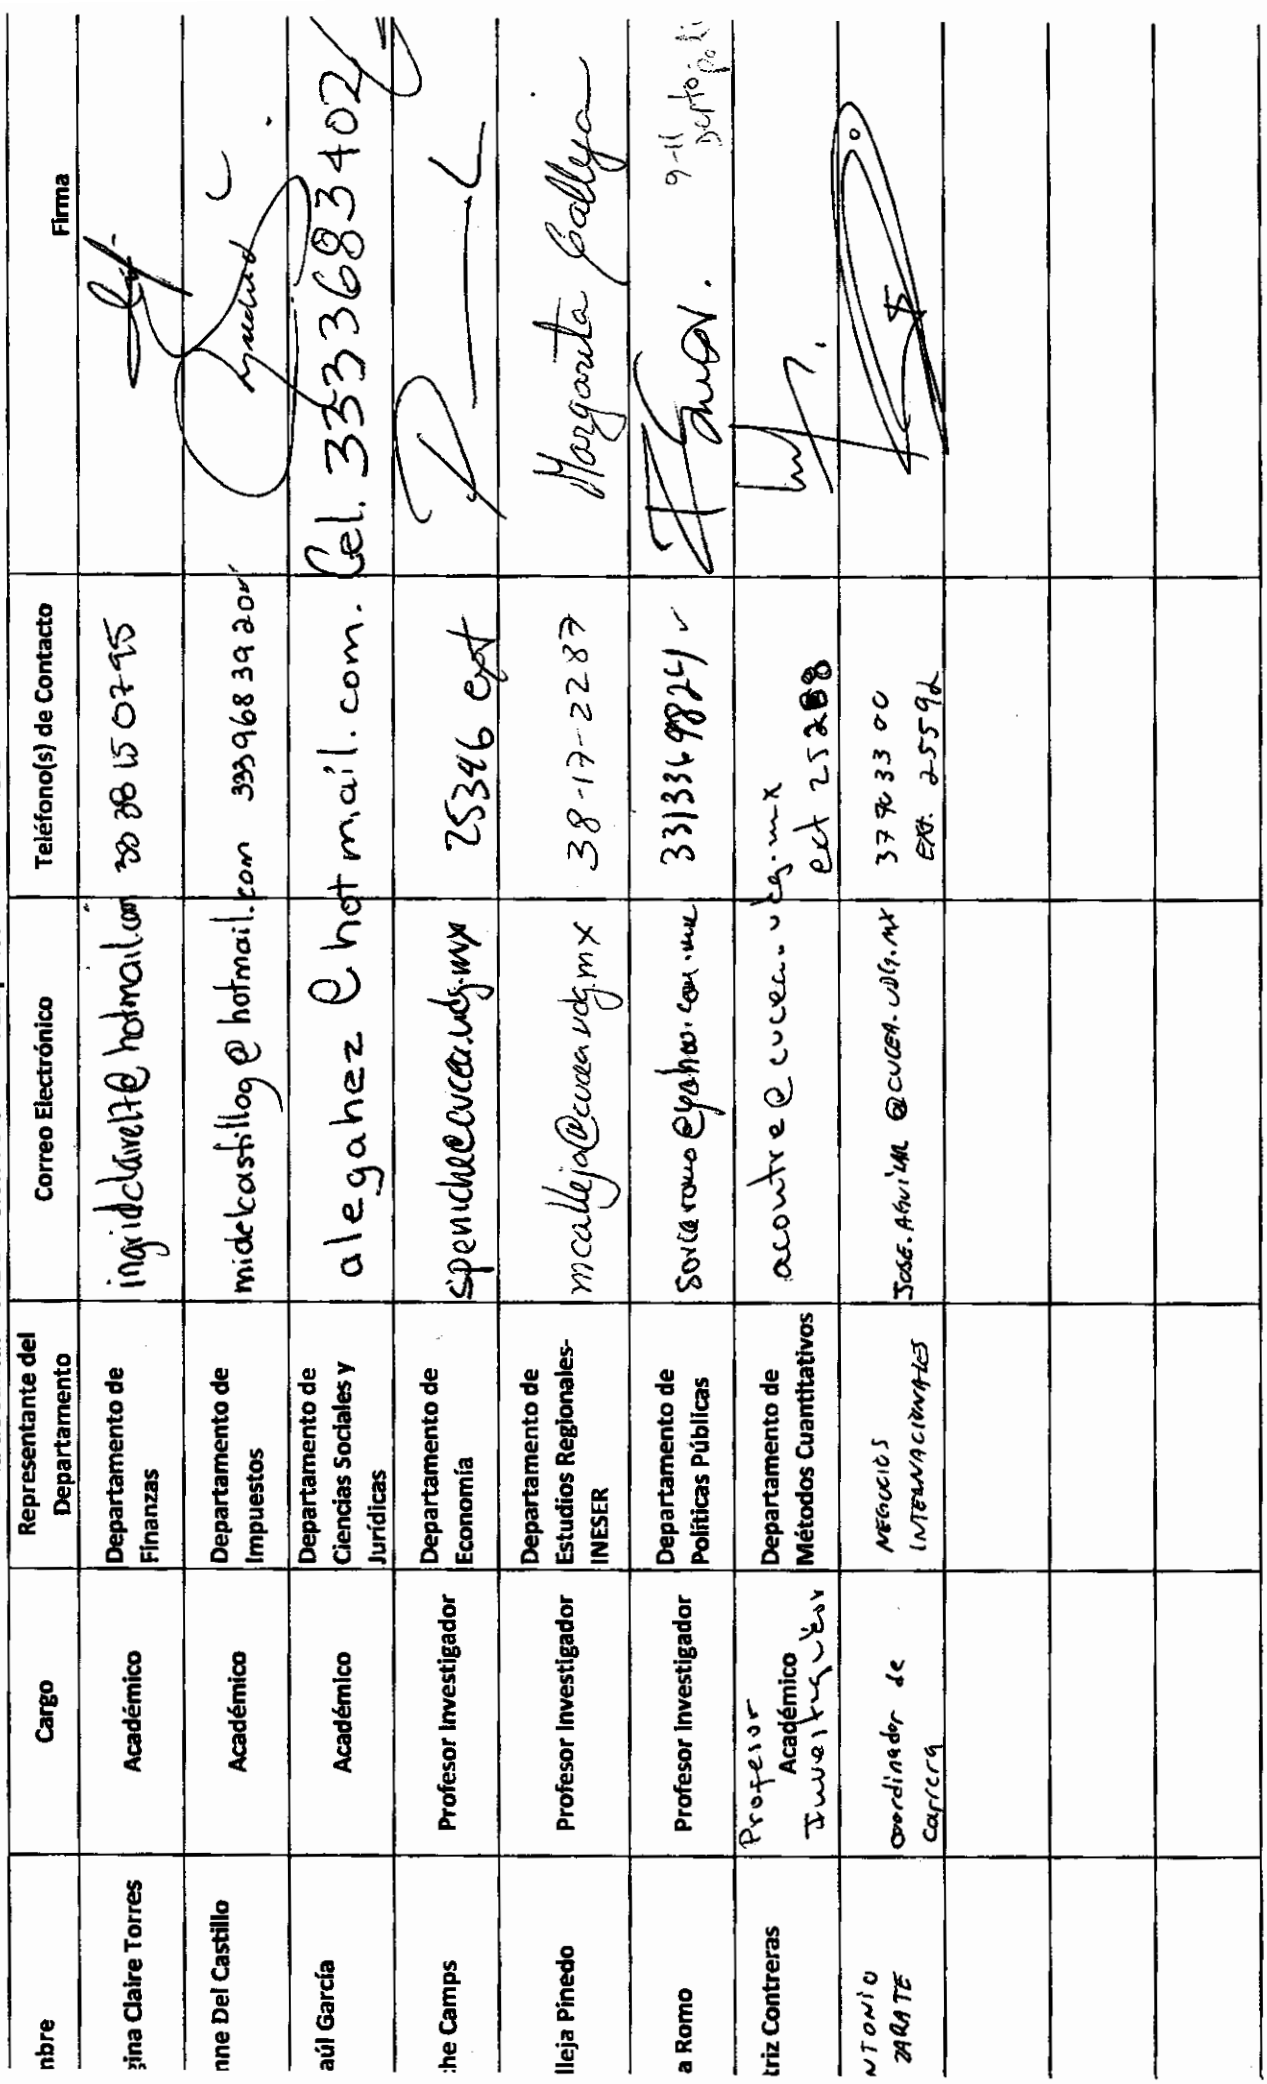 nbre
Cargo
Representante del
Departamento
Correo Electrónico
Teléfono(s) de Contacto
Firma
gina Claire Torres
Académico
Departamento de
Finanzas
nne Del Castillo
Académico
Departamento de
Impuestos
midelcastillog@hotmail.com
aúl García
Académico
Departamento de
Ciencias Sociales y
Jurídicas
alegahez@hotmail.com.
Cel. 3333683402
:he Camps
Profesor Investigador
Departamento de
Economía
speniche@cucea.udg.mx
25346 ext
lleja Pinedo
Profesor Investigador
Departamento de
Estudios Regionales-
INESER
mcalleja@cucea.udg.mx
38-17-2287
Margarita Calleja
a Romo
Profesor Investigador
Departamento de
Políticas Públicas
9-11
triz Contreras
Profesor
Académico
Investigador
Departamento de
Métodos Cuantitativos
acontre@cucea.udg.mx
ext
NTONIO
ZARATE
coordinador de
carrera
NEGOCIOS
INTERNACIONALES
JOSE.AGUILAR@CUCEA.UDG.MX
37703300
EXT. 25592